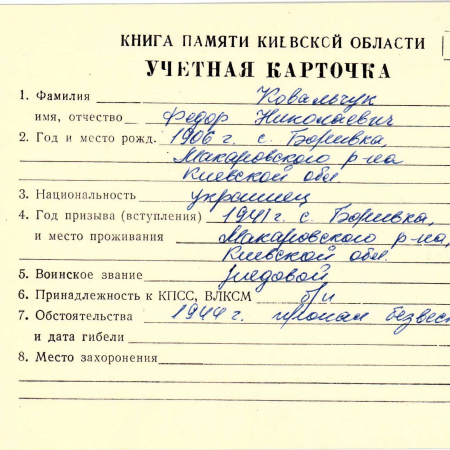 КНИГА ПАМЯТИ КИЕВСКОЙ ОБЛАСТИ
УЧЕТНАЯ КАРТОЧКА
1. Фамилия Ковальчук
имя, отчество Федор Николаевич
2. Год и место рожд. 1906 г. с. Боривка,
Макаровского р-на
Киевской обл
3. Национальность украинец
4. Год призыва (вступления) 1941 г. с. Боривка,
и место проживания Макаровского р-на,
Киевской обл.
5. Воинское звание рядовой
6. Принадлежность к КПСС, ВЛКСМ б/п
7. Обстоятельства 1944 г. пропал безвес
и дата гибели
8. Место захоронения